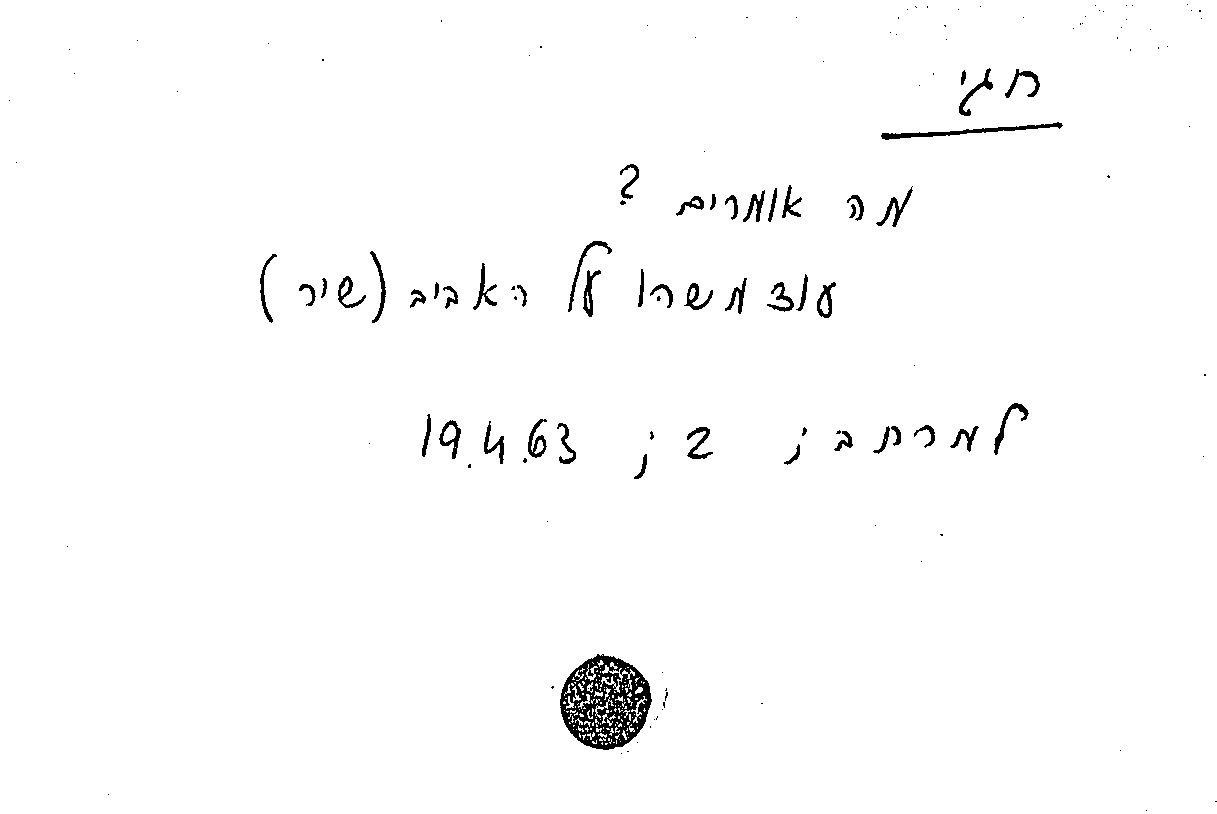 חגי
מה אומרים ?
עוד משהו על האביב (שיר)
למרחב ; 2 ; 19.4.63